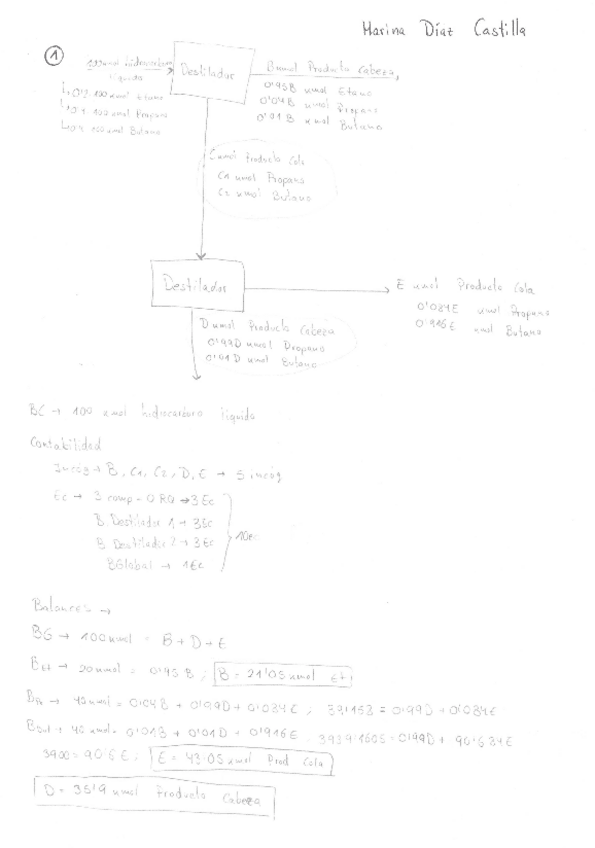 Marina Díaz Castilla
1
100 xmol hidrocarburo líquido
Destilador
B xmol Producto Cabeza
0'2·100 xmol Etano
0'4·100 xmol Propano
0'4·100 xmol Butano
0'95B xmol Etano
0'04B xmol Propano
0'01B xmol Butano
C xmol Producto Cola
C1 xmol Propano
C2 xmol Butano
Destilador
E xmol Producto Cola
0'084E xmol Propano
0'916E xmol Butano
D xmol Producto Cabeza
0'99D xmol Propano
0'01D xmol Butano
BC → 100 xmol hidrocarburo líquido
Contabilidad
Incóg → B, C1, C2, D, E → 5 incóg
Ec → 3 comp - 0 RQ → 3 Ec
B. Destilador 1 → 3 Ec
B. Destilador 2 → 3 Ec
B Global → 1 Ec
10 ec
Balances →
BG → 100 xmol = B + D + E
BEt → 20 xmol = 0'95 B ; B = 21'05 xmol Et
BPr → 40 xmol = 0'04B + 0'99D + 0'084E ; 39'158 = 0'99D + 0'084E
BBut → 40 xmol = 0'01B + 0'01D + 0'916E
3900 = 90'6E ; E = 43'05 xmol Prod Cola
D = 35'9 xmol Producto Cabeza